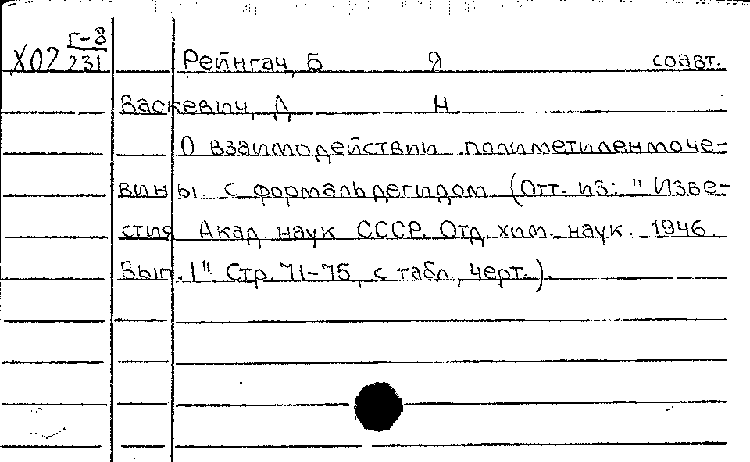 Г-8
Х02 231
Рейнгач, Б Я соавт.
Васкевич, Д Н
О взаимодействии полиметиленмоче-
вины с формальдегидом (Отт. из: "Изве-
стия Акад наук СССР. Отд хим. наук. 1946.
Вып. 1" Стр. 71-75, с табл, черт.).